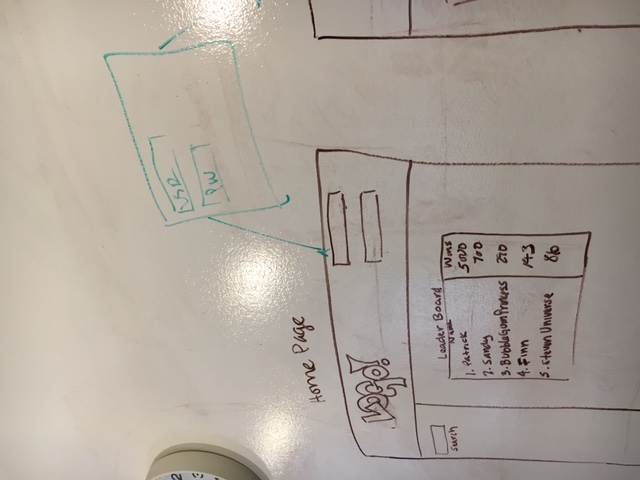 USR
PW
Home Page
LOGO!
Search
Leader Board
Name Wins
1. Patrick 5000
2. Sandy 700
3. BubbleGum Princess 290
4. Finn 143
5. Steven Universe 86
2
3